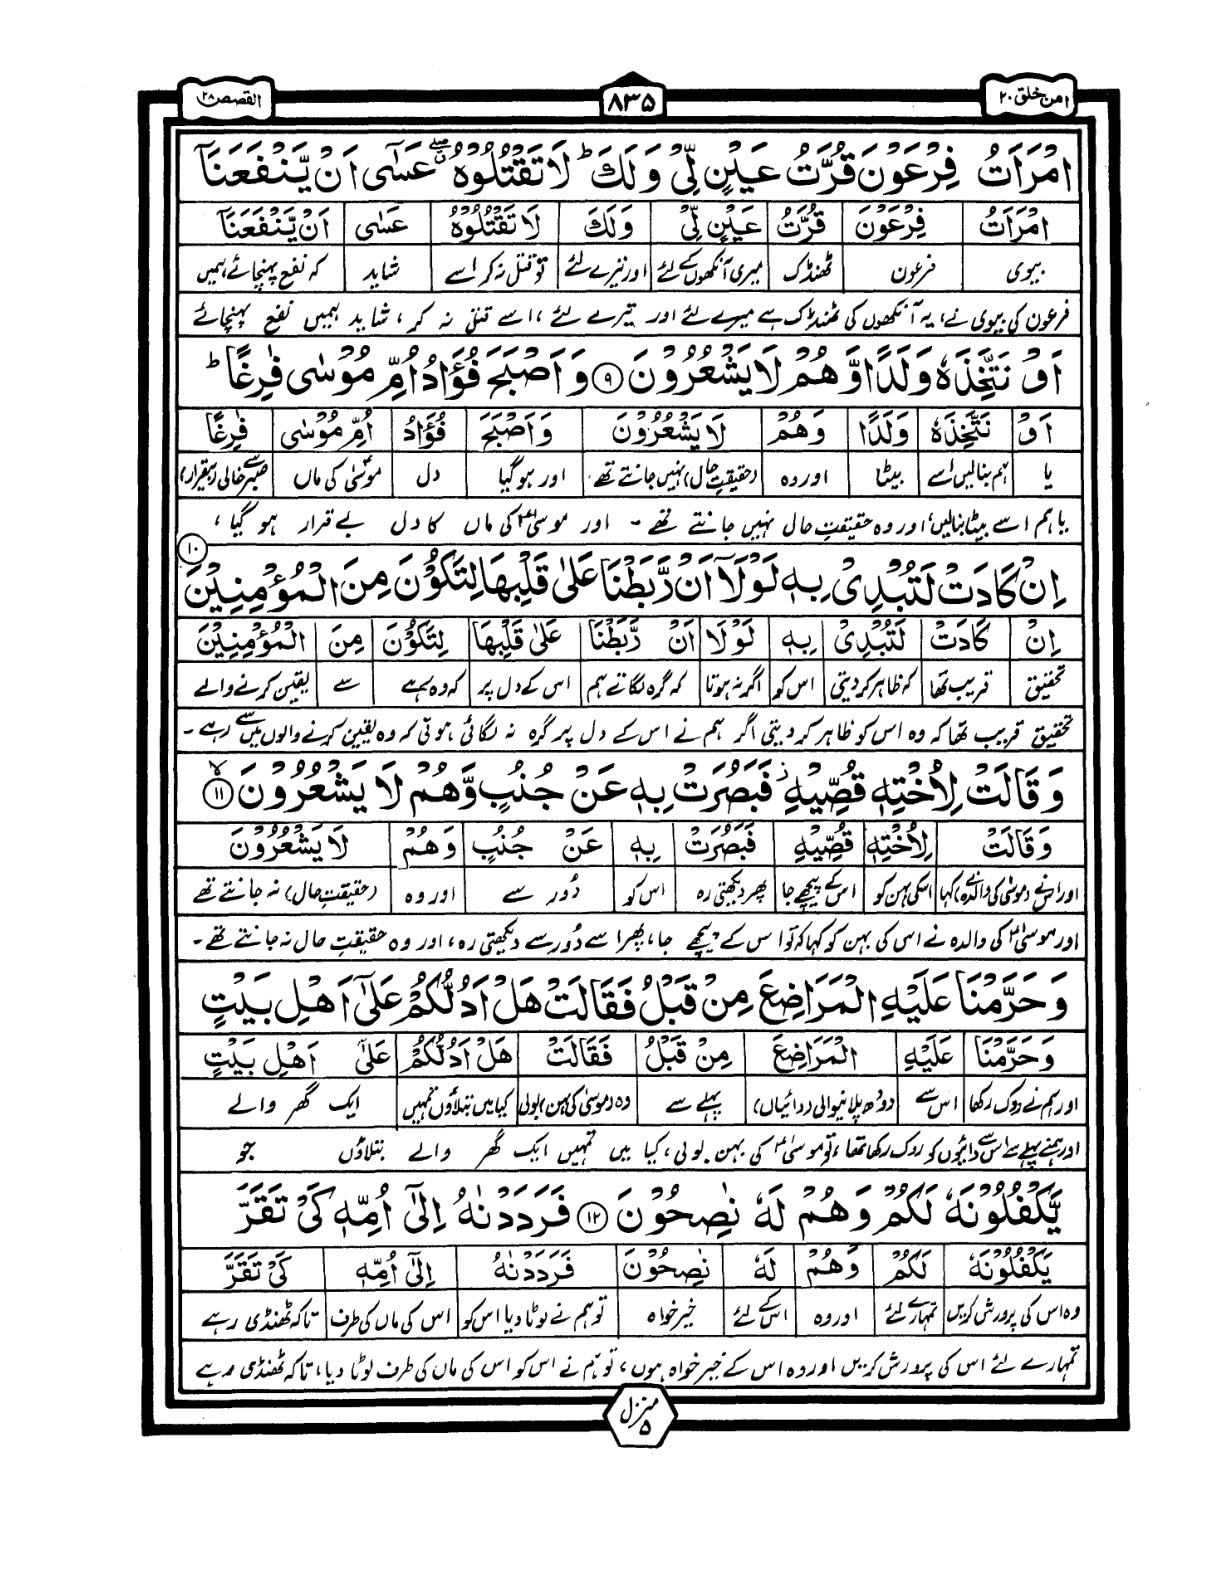 امن خلق ۲۰
۸۳۵
القصص ۲۸
امْرَاَتُ فِرْعَوْنَ قُرَّتُ عَيْنٍ لِّيْ وَلَكَ ؕ لَا تَقْتُلُوْهُ ۖ عَسٰٓى اَنْ يَّنْفَعَنَاۤ
امْرَاَتُ فِرْعَوْنَ قُرَّتُ عَيْنٍ لِّيْ وَلَكَ لَا تَقْتُلُوْهُ عَسٰٓى اَنْ يَّنْفَعَنَاۤ
بیوی فرعون ٹھنڈک میری آنکھوں کے لئے اور تیرے لئے تو قتل نہ کر اسے شاید کہ نفع پہنچائے ہمیں
فرعون کی بیوی نے، یہ آنکھوں کی ٹھنڈک ہے میرے لئے اور تیرے لئے، اسے قتل نہ کر، شاید ہمیں نفع پہنچائے
اَوْ نَتَّخِذَهٗ وَلَدًا وَّهُمْ لَا يَشْعُرُوْنَ ۹ وَاَصْبَحَ فُؤَادُ اُمِّ مُوْسٰى فٰرِغًا ؕ
اَوْ نَتَّخِذَهٗ وَلَدًا وَهُمْ لَا يَشْعُرُوْنَ وَاَصْبَحَ فُؤَادُ اُمِّ مُوْسٰى فٰرِغًا
یا ہم بنالیں اسے بیٹا اور وہ (حقیقتِ حال) نہیں جانتے تھے اور ہوگیا دل موسیٰؑ کی ماں صبر سے خالی (بیقرار)
یا ہم اسے بیٹا بنالیں، اور وہ حقیقتِ حال نہیں جانتے تھے ۔ اور موسیٰؑ کی ماں کا دل بے قرار ہو گیا ،
اِنْ كَادَتْ لَتُبْدِيْ بِهٖ لَوْلَاۤ اَنْ رَّبَطْنَا عَلٰى قَلْبِهَا لِتَكُوْنَ مِنَ الْمُؤْمِنِيْنَ ۱۰
اِنْ كَادَتْ لَتُبْدِيْ بِهٖ لَوْلَا اَنْ رَّبَطْنَا عَلٰى قَلْبِهَا لِتَكُوْنَ مِنَ الْمُؤْمِنِيْنَ
تحقیق قریب تھا کہ ظاہر کر دیتی اس کو اگر نہ ہوتا کہ گرہ لگاتے ہم اس کے دل پر کہ وہ رہے سے یقین کرنے والے
تحقیق قریب تھا کہ وہ اس کو ظاہر کر دیتی اگر ہم نے اس کے دل پر گرہ نہ لگائی ہوتی کہ وہ یقین کرنے والوں میں سے رہے ۔
وَقَالَتْ لِاُخْتِهٖ قُصِّيْهِ ز فَبَصُرَتْ بِهٖ عَنْ جُنُبٍ وَّهُمْ لَا يَشْعُرُوْنَ ۱۱ لا
وَقَالَتْ لِاُخْتِهٖ قُصِّيْهِ فَبَصُرَتْ بِهٖ عَنْ جُنُبٍ وَهُمْ لَا يَشْعُرُوْنَ
اور اس نے (موسیٰؑ کی والدہ) کہا اسکی بہن کو اس کے پیچھے جا پھر دیکھتی رہ اس کو دُور سے اور وہ (حقیقتِ حال) نہ جانتے تھے
اور موسیٰؑ کی والدہ نے اس کی بہن کو کہا کہ تو اس کے پیچھے جا، پھر اسے دُور سے دیکھتی رہ، اور وہ حقیقتِ حال نہ جانتے تھے ۔
وَحَرَّمْنَا عَلَيْهِ الْمَرَاضِعَ مِنْ قَبْلُ فَقَالَتْ هَلْ اَدُلُّكُمْ عَلٰٓى اَهْلِ بَيْتٍ
وَحَرَّمْنَا عَلَيْهِ الْمَرَاضِعَ مِنْ قَبْلُ فَقَالَتْ هَلْ اَدُلُّكُمْ عَلٰٓى اَهْلِ بَيْتٍ
اور ہم نے روک رکھا اس سے دودھ پلانیوالی (دائیاں) پہلے سے وہ (موسیٰ کی بہن) بولی کیا میں بتلاؤں تمہیں ایک گھر والے
اور ہم نے پہلے سے اس سے دائیوں کو روک رکھا تھا، تو موسیٰؑ کی بہن بولی، کیا میں تمہیں ایک گھر والے بتلاؤں جو
يَّكْفُلُوْنَهٗ لَكُمْ وَهُمْ لَهٗ نٰصِحُوْنَ ۱۲ فَرَدَدْنٰهُ اِلٰٓى اُمِّهٖ كَيْ تَقَرَّ
يَكْفُلُوْنَهٗ لَكُمْ وَهُمْ لَهٗ نٰصِحُوْنَ فَرَدَدْنٰهُ اِلٰٓى اُمِّهٖ كَيْ تَقَرَّ
وہ اس کی پرورش کریں تمہارے لئے اور وہ اس کے لئے خیرخواہ تو ہم نے لوٹا دیا اس کو اس کی ماں کی طرف تاکہ ٹھنڈی رہے
تمہارے لئے اس کی پرورش کریں اور وہ اس کے خیر خواہ ہوں، تو ہم نے اس کو اس کی ماں کی طرف لوٹا دیا، تاکہ ٹھنڈی رہے
منزل ۵